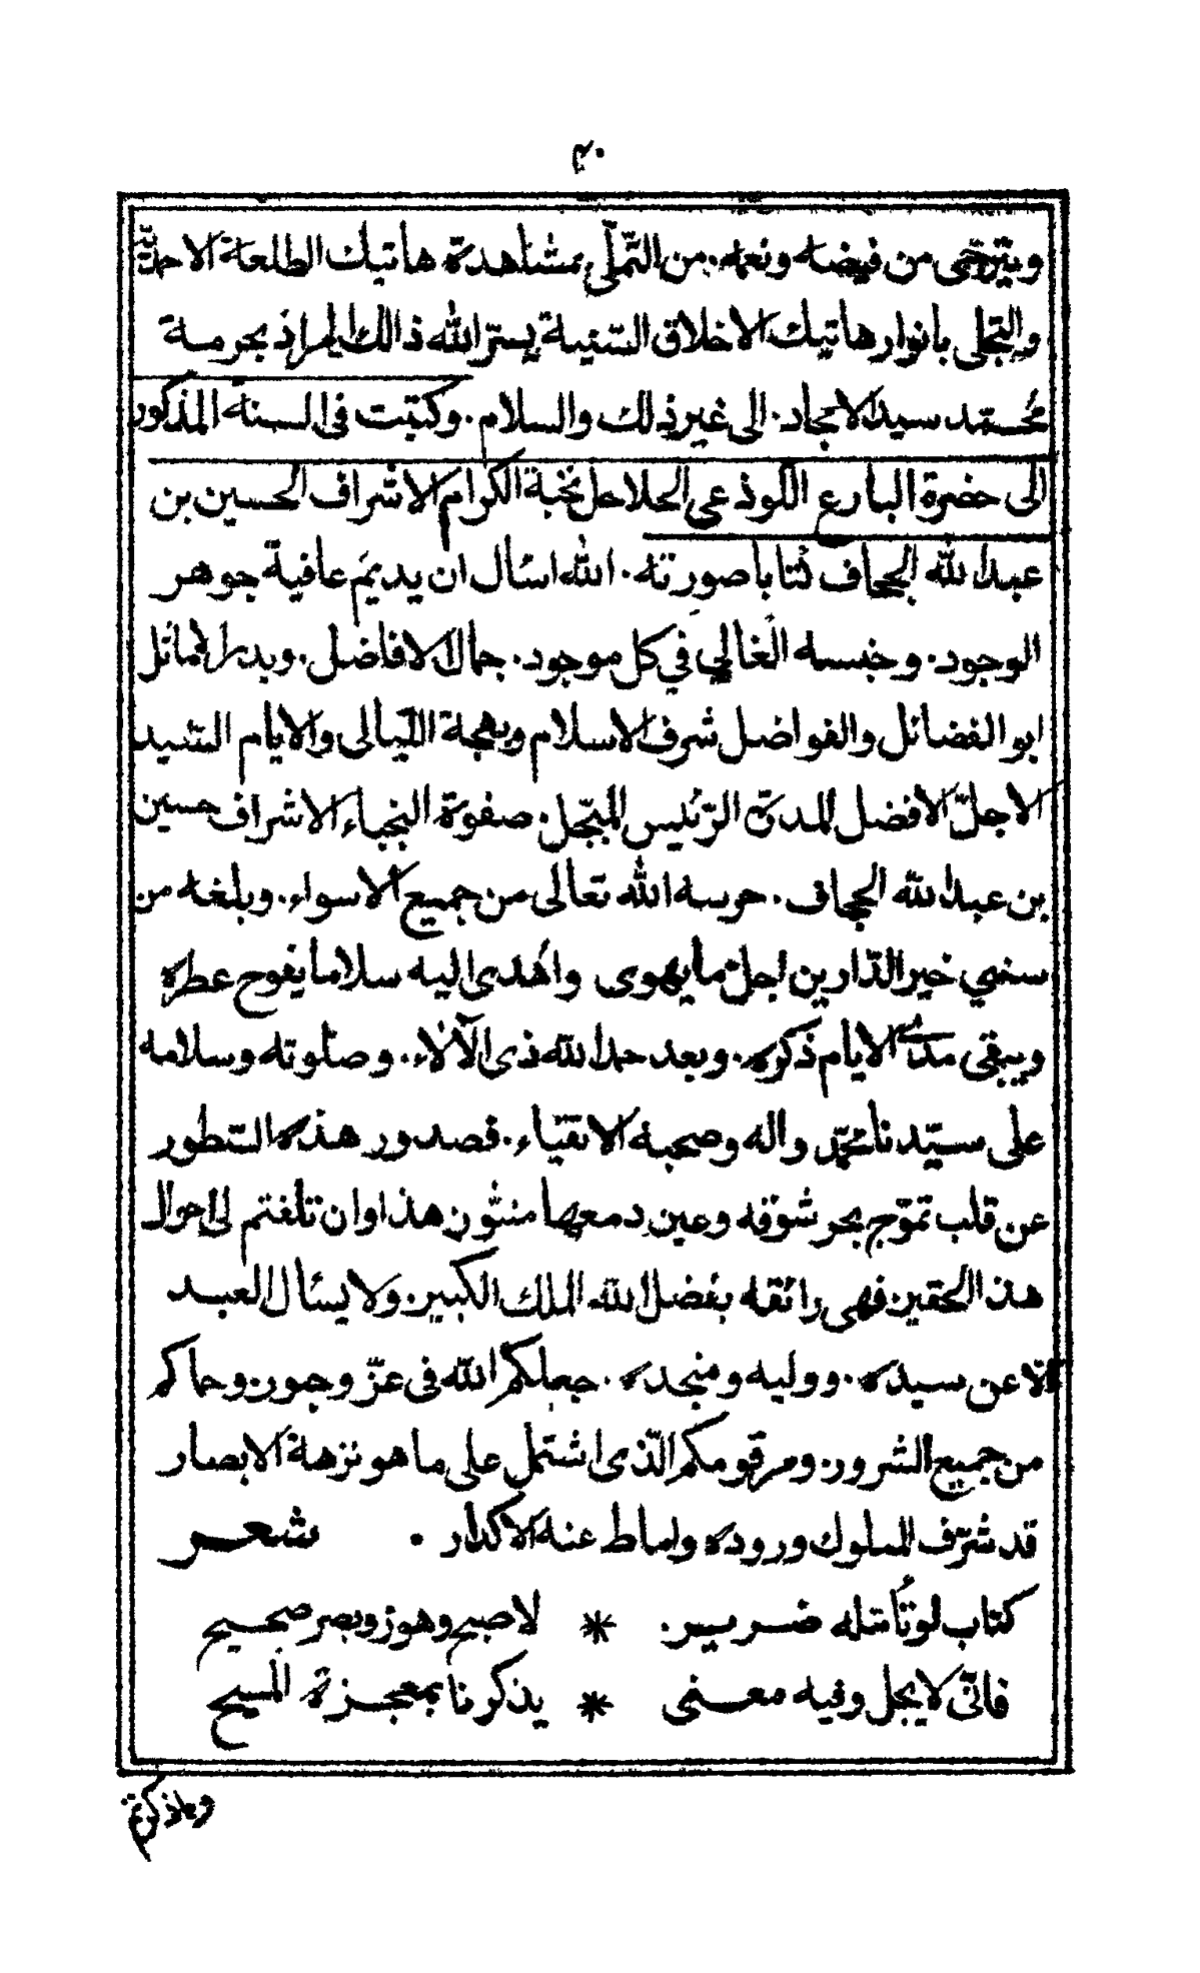 ٣٠
ويترجى من فيضه ونعمه. من التملّي بمشاهدة هاتيك الطلعة الاحمديّة
والتجلى بانوار هاتيك الاخلاق السّنيّة يسّر الله ذالك المراد بحرمة
محمّد سيد الامجاد. الى غير ذلك والسلام. وكتبت فى السنة المذكورة
الى حضرة البارع اللوذعى الحلاحل نخبة الكرام الاشراف الحسين بن
عبدالله الجحاف كتاباً صورته. الله اسأل ان يديم عافية جوهر
الوجود. وجنسه الغالي في كل موجود. جمال الافاضل. وبدر الاماثل
ابو الفضائل والفواضل شرف الاسلام وبهجة اللّيالى والايام السّيد
الاجلّ الافضل المدرّة الرّئيس المبجّل. صفوة النجباء الاشراف حسين
بن عبدالله الجحاف. حرسه الله تعالى من جميع الاسواء. وبلغه من
سني خير الدّارين اجل ما يهوى واُهدى اليه سلاما يفوح عطره
ويبقى مدى الايام ذكره. وبعد حمدالله ذى الآلاء. وصلوته وسلامه
على سيّدنا محمّد واله وصحبه الاتقياء. فصدور هذه السّطور
عن قلب تموّج بحر شوقه وعين دمعها منثور هذا وان تلفتم الى احوال
هذا الحقير. فهى رائقه بفضل الله الملك الكبير. ولا يسأل العبد
الا عن سيده. ووليه ومنجده. جعلكم الله فى عزّ وحبور. وحماكم
من جميع الشرور. ومرقومكم الّذى اشتمل على ما هو نزهة الابصار
قد شرّف المملوك وروده واماط عنه الاكدار . شعر
كتاب لو تأمّله ضرير. * لاصبح وهو ذو بصر صحيح
فانّى لا يجل وفيه معنى * يذكرنا بمعجزة المسيح
وماذكرتم